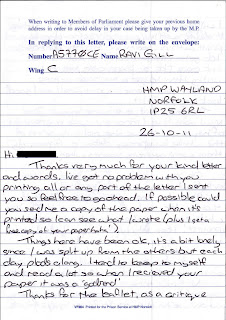 When writing to Members of Parliament please give your previous home
address in order to avoid delay in your case being taken up by the M.P.
In replying to this letter, please write on the envelope:
Number A5770CE Name RAVI GILL
Wing C
HMP WAYLAND
NORFOLK
IP25 6RL
26-10-11
Hi
Thanks very much for your kind letter
and words. I've got no problem with you
printing all or any part of the letter I sent
you so feel free to go ahead. If possible could
you send me a copy of the paper when it's
printed so I can see what I wrote (plus I get a
free copy of your paper haha).
Things here have been ok, it's a bit lonely
since I was split up from the others but each
day plods along. I tend to keep to myself
and read a lot so when I recieved your
paper it was a 'godsend'
Thanks for the leaflet, as a critique